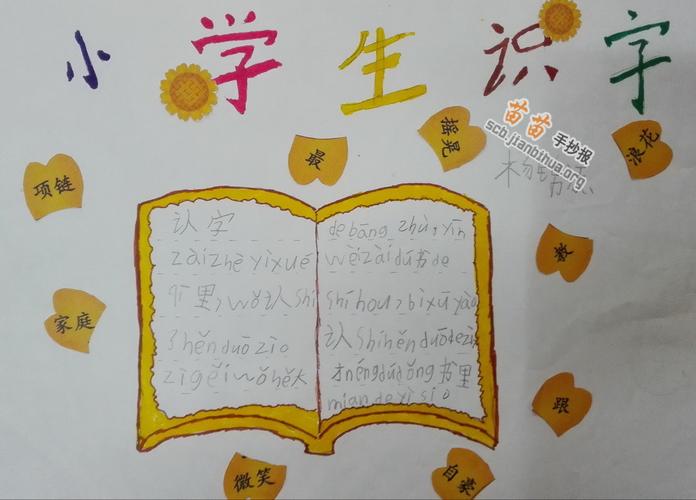 小学生识字
苗苗手抄报
scb.jianbihua.org
最
摇晃
浪花
项链
家庭
跟
微笑
认字
zàizhè yìxué
里,wǒ认shi
了hěnduōzì。
zìgěiwǒhěn大
debāngzhù,yīn
wèizàidú书de
shíhou,bìxūyào
认shíhěnduōdezì
才néngdúdǒng书里
miandeyìsi。